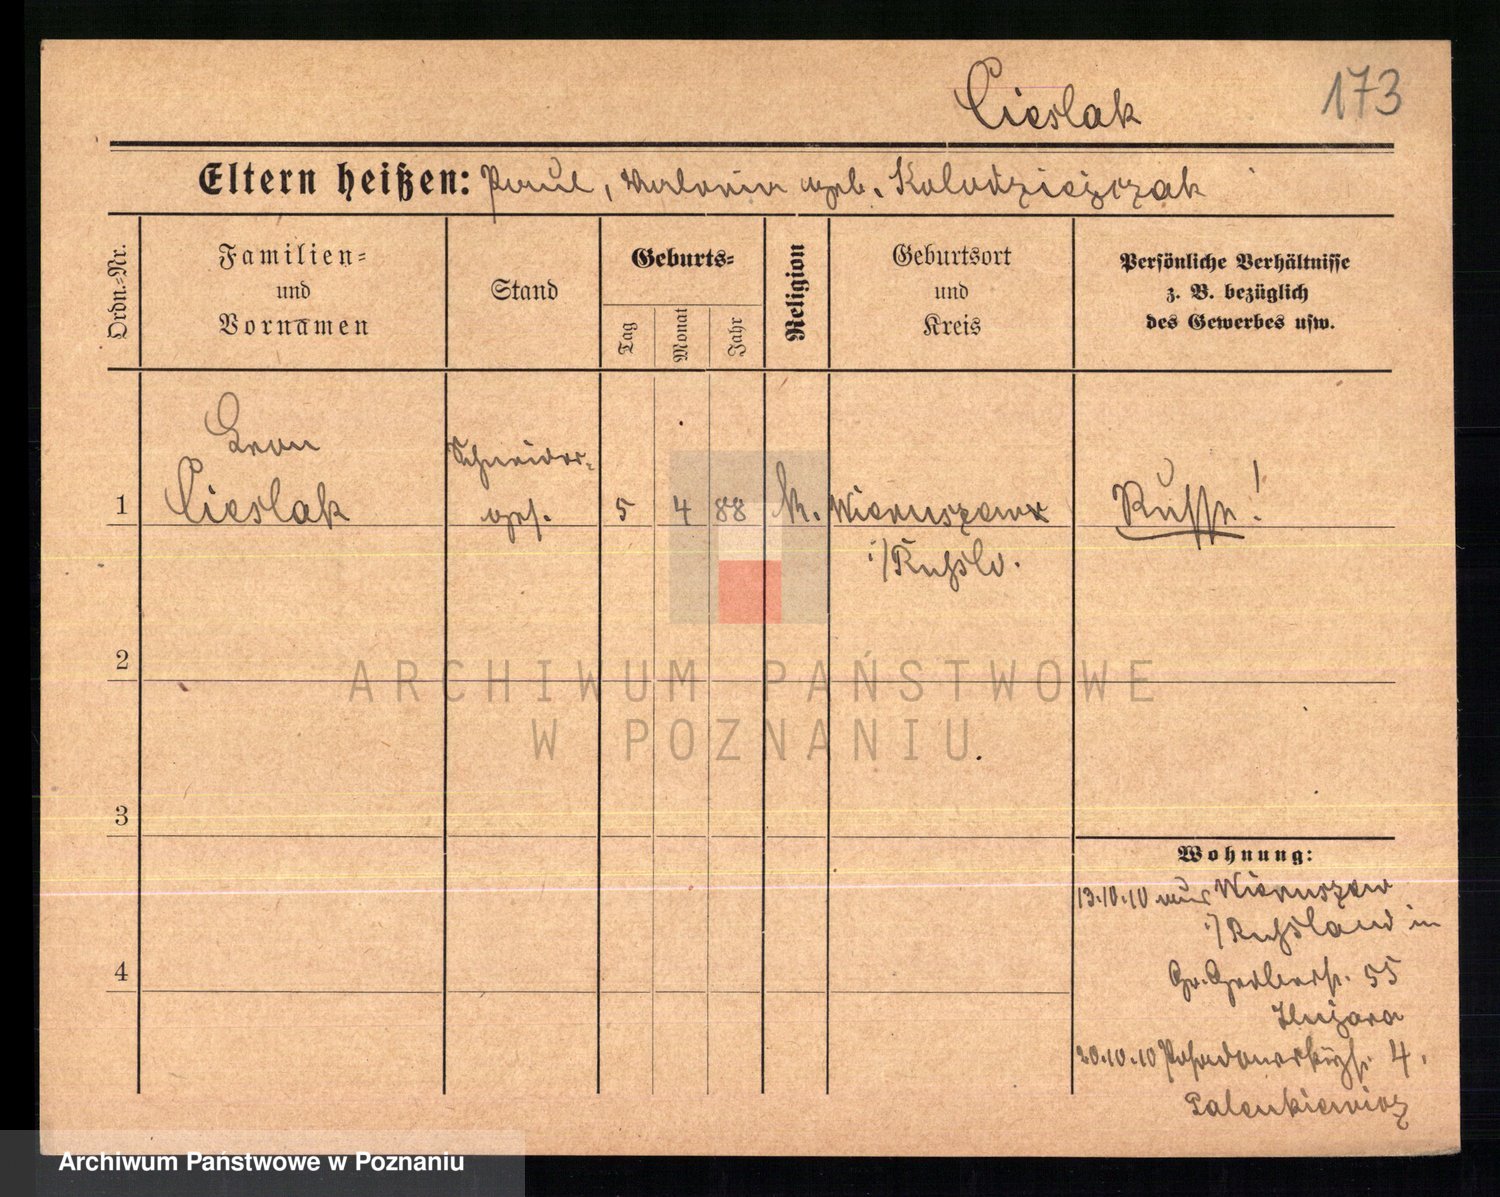 Cieslak 173
Eltern heißen: Paul, Valeria geb. Kolodziejczak
Ordn.-Nr.
Familien-
und
Vornamen
Stand
Geburts-
Tag
Monat
Jahr
Religion
Geburtsort
und
Kreis
Persönliche Verhältnisse
z. B. bezüglich
des Gewerbes usw.
Leon
Schneider-
1 Cieslak ges. 5 4 88 k. Wieruszow Russe!
i/Rußld.
2
ARCHIWUM PAŃSTWOWE
W POZNANIU
3
Wohnung:
13.10.10 aus Wieruszow
i/Russland in
4
Gr. Gerberstr. 55
20.10.10 Posadowskystr. 4.
Palenkiewicz
Archiwum Państwowe w Poznaniu